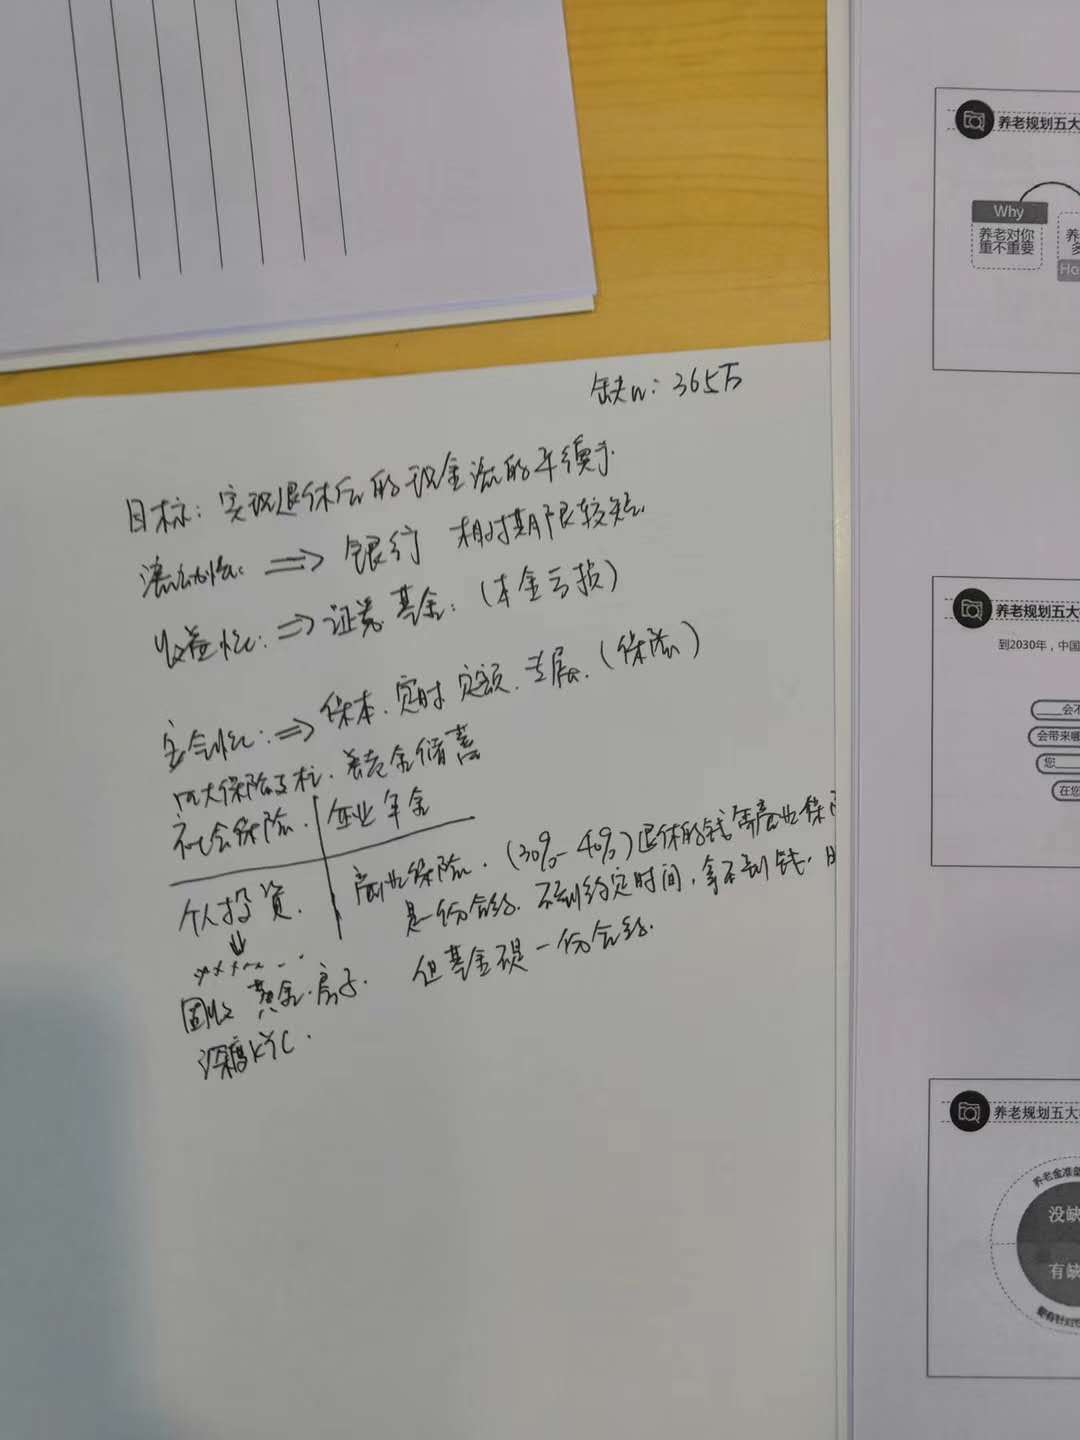 缺口：365万
目标：实现退休后的现金流的平衡
流动性 => 银行 相对期限较短
收益性：=> 证券基金：(本金亏损)
安全性：=> 保本.定时 定额.专属.(保险)
四大保险支柱.养老金储蓄
社会保险. 企业年金
个人投资.
商业保险.(30%-40%)退休的钱需商业保
是一份合约.不到约定时间,拿不到钱.
但基金不是一份合约.
固收 黄金.房子.
深度KYC.
养老规划五大
Why
养老对你
重不重要
养老规划五大
到2030年，中国
会不
会带来哪
您
在您
养老规划五大
养老金准备
没缺
有缺